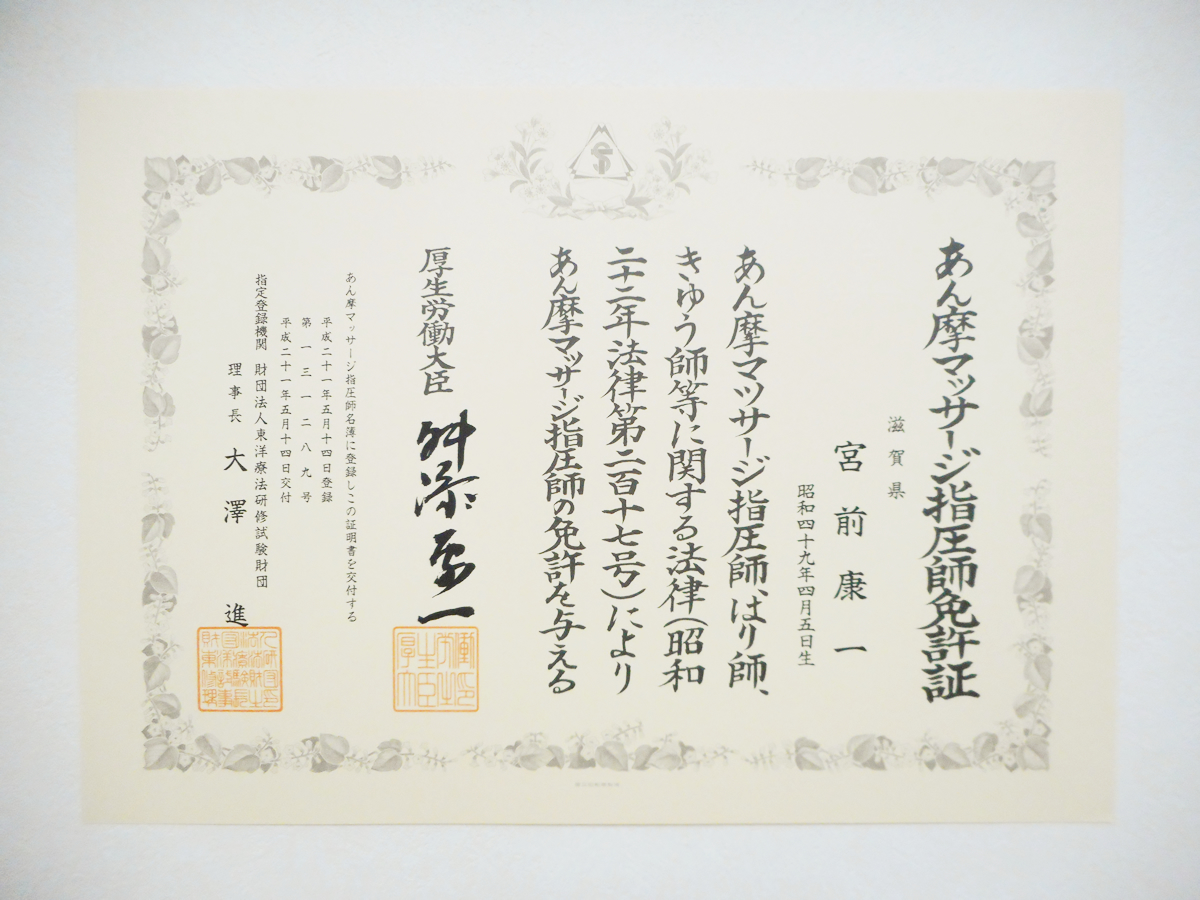 あん摩マッサージ指圧師免許証
滋賀県
宮前康一
昭和四十九年四月五日生
あん摩マツサージ指圧師、はり師、
きゆう師等に関する法律(昭和
二十二年法律第二百十七号)により
あん摩マッサージ指圧師の免許を与える
厚生労働大臣 舛添要一
あん摩マッサージ指圧師名簿に登録しこの証明書を交付する
平成二十一年五月十四日登録
第一三一二八九号
平成二十一年五月十四日交付
指定登録機関 財団法人東洋療法研修試験財団
理事長 大澤進